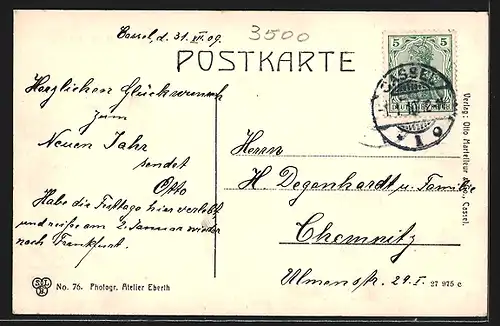 Cassel, d. 31. XII. 09.
3500
POSTKARTE
5 5
CASSEL
* 1 o
Herzlichen Glückwunsch
zum
Neuen Jahr
sendet
Otto
Habe die Festtage hier verlebt
und reise am 2. Januar wieder
nach Frankfurt.
Herrn
H. Degenhardt u. Familie
Chemnitz
Ulmenstr. 29. I.
Verlag: Otto Cassel.
No. 76. Photogr. Atelier Eberth
27 975 c